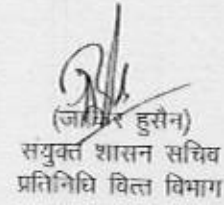 (जाकिर हुसैन)
सयुक्त शासन सचिव
प्रतिनिधि वित्त विभाग